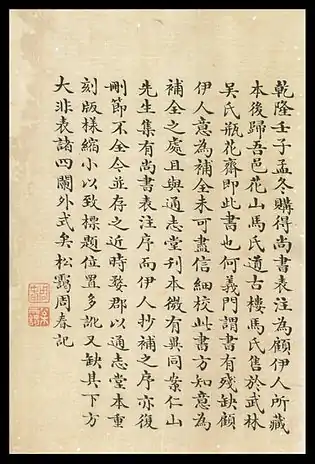 乾隆壬子孟冬購得尚書表注為顧伊人所藏
本後歸吾邑花山馬氏道古樓馬氏售於武林
吳氏瓶花齋即此書也何義門謂書有殘缺顧
伊人意為補全未可盡信細校此書方知意為
補全之處且與通志堂刊本微有異同案仁山
先生集有尚書表注序而伊人抄補之序亦復
刪節不全今並存之近時婺郡以通志堂本重
刻版樣縮小以致標題位置多訛又缺其下方
大非表諸四闌外式矣松靄周春記